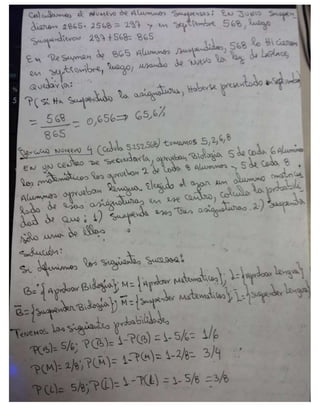 Calculamos el número de Alumnos Suspensos: En Junio Suspen-
dieron 2865-2568 = 297 y en septiembre 568, luego
Suspendieron 297+568= 865
En Resumen de 865 Alumnos suspendidos, 568 lo hicieron
en septiembre, luego, usando de nuevo la ley de Laplace,
quedaría:
P(si Ha Suspendido la asignatura, Haberse presentado en septiembre
= 568/865 = 0,656 => 65,6%
Ejercicio Número 4 (Cedula 5.152.568) tenemos 5,2,6,8
EN UN centro de secundaria, aprueban Biología 5 de cada 6 Alumnos
las matemáticas las aprueban 2 de cada 8 alumnos y 5 de cada 8
Alumnos aprueban lengua. Elegido al azar un alumno matricu-
lado de esas asignaturas en ese centro, calcula la probabili-
dad de que: 1) suspenda esas tres asignaturas. 2) Suspenda
sólo una de ellas
Solución:
Si definimos los siguientes sucesos:
B={Aprobar Biología}; M={Aprobar Matematicas}; L={aprobar Lengua}
B̅={Suspender Biología}; M̅={Suspender Matematicas}; L̅={Suspender Lengua}
Tenemos las siguientes probabilidades
P(B)= 5/6; P(B̅)= 1-P(B)= 1-5/6= 1/6
P(M)= 2/8; P(M̅)= 1-P(M)= 1-2/8= 3/4
P(L)= 5/8; P(L̅)= 1-P(L)= 1-5/8 =3/8